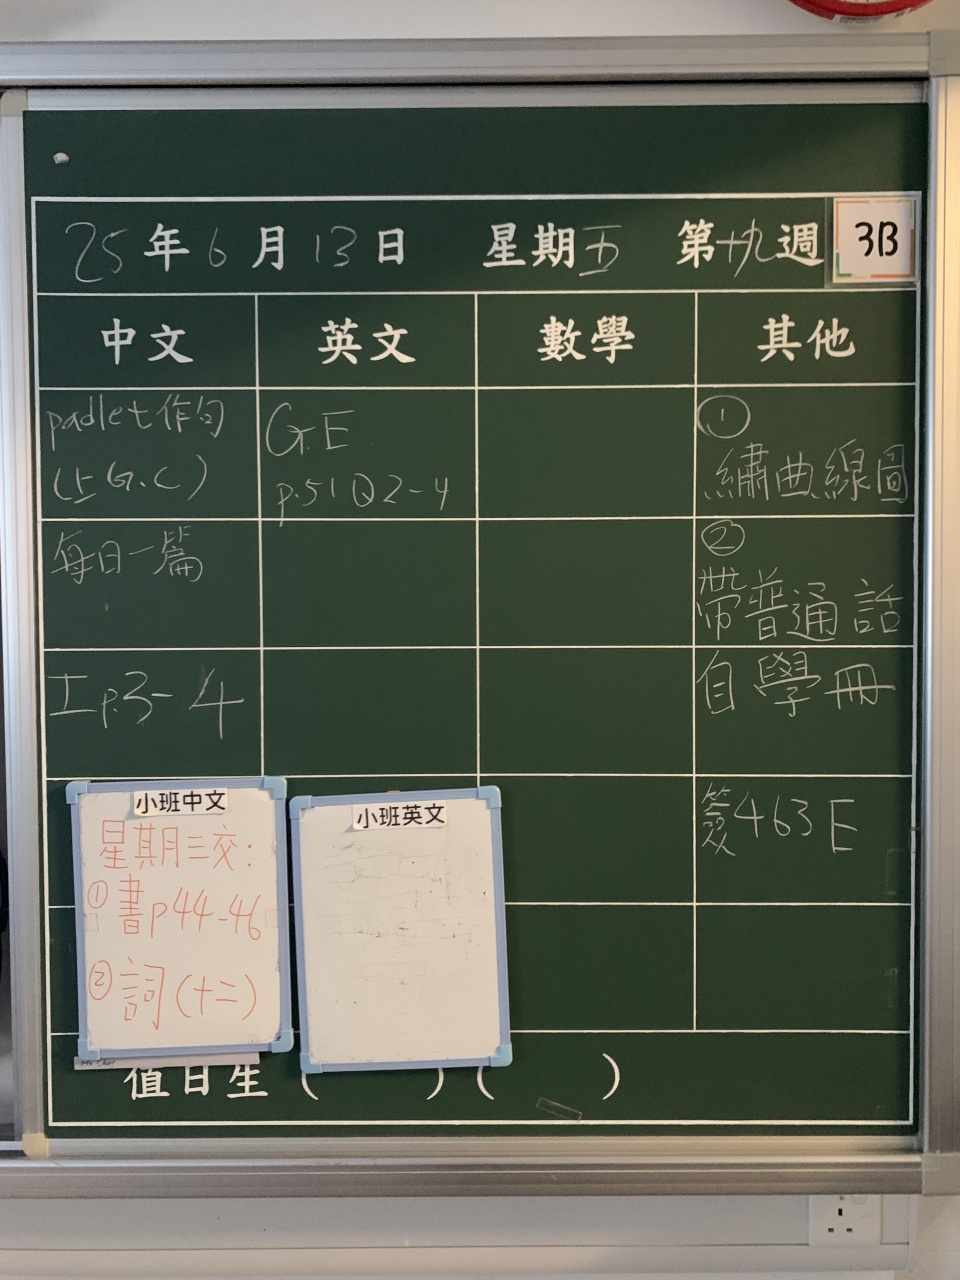 25年6月13日 星期五 第十九週 3B
中文 英文 數學 其他
padlet作句
(上G.C)
G.E
p.51 Q2-4
①
繡曲線圖
每日一篇
②
帶普通話
工p.3-4
自學冊
簽463E
小班中文
星期三交:
①書p44-46
②詞(十二)
小班英文
值日生 ( ) ( )